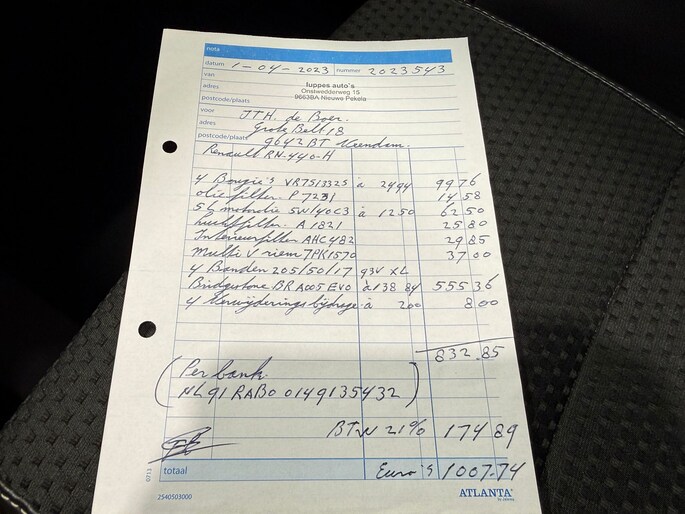 nota
datum 1-04-2023 nummer 2023543
van
adres luppes auto's
Onstwedderweg 15
postcode/plaats 9663BA Nieuwe Pekela
voor J.T.H. de Boer.
adres Grote Belt 18
postcode/plaats 9642 BT Veendam.
Renault RN-440-H
4 Bougie's VR7SI332S à 24 94 99 76
oliefilter P 7231 14 58
5L motorolie 5W/40C3 à 12 50 62 50
Luchtfilter A 1821 25 80
Interieurfilter AHC482 29 85
Multi V riem 7PK1570 37 00
4 Banden 205/50/17 93V XL
Bridgestone BR A005 EVO à 138 84 555 36
4 Verwijderings bijdrage à 2 00 8 00
832.85
(Per bank
NL91 RABO 0149135432)
BTW 21% 174 89
totaal Euro's 1007.74
0713
2540503000
ATLANTA